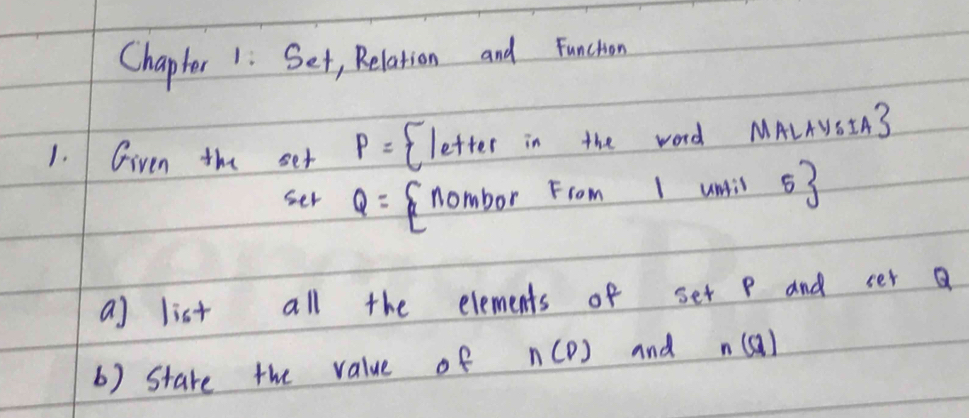 Chapter 1: Set, Relation and Function
1. Given the set P = { letter in the word MALAYSIA }
set Q = { nombor From 1 until 5 }
a) list all the elements of set P and set Q
b) State the value of n(P) and n(Q)